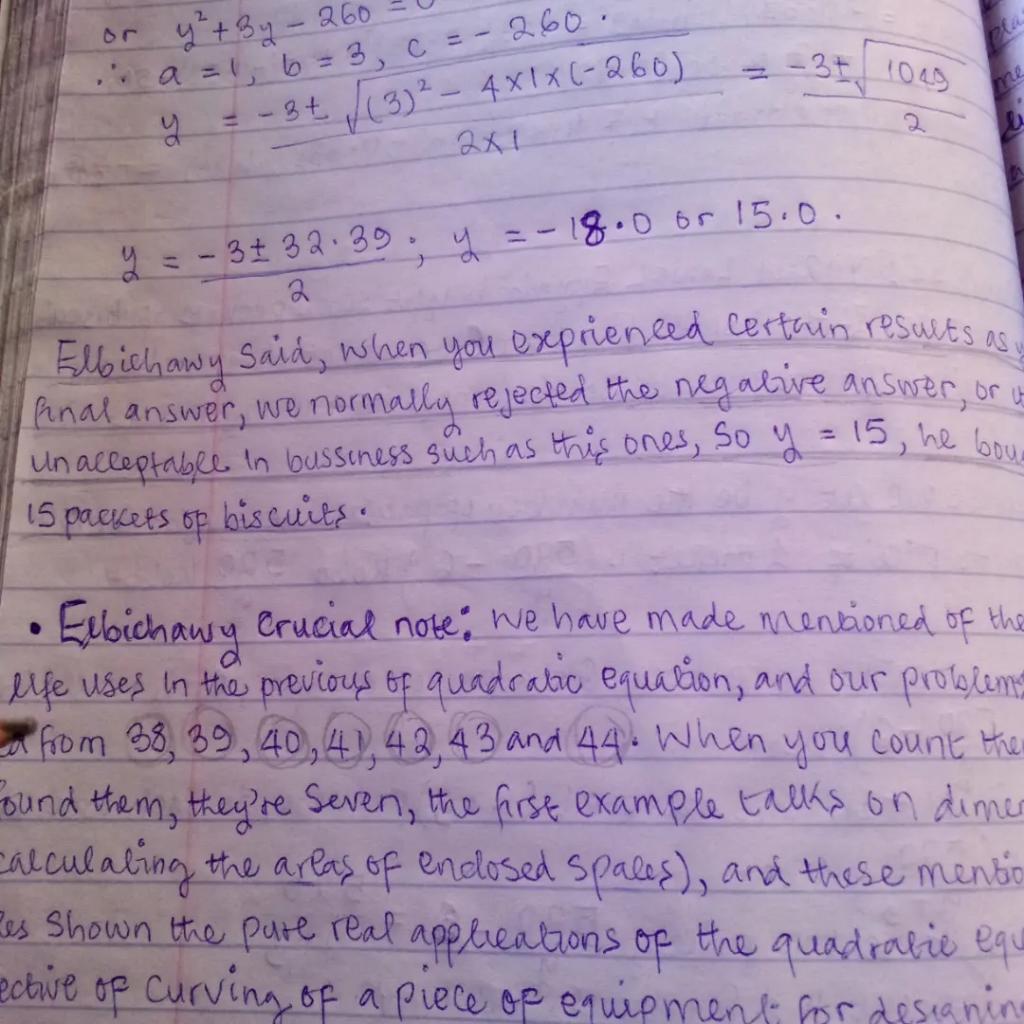 or y²+3y-260 = 0
∴ a = 1, b = 3, c = - 260.
y = -3± √(3)² - 4×1×(-260) / 2×1 = -3± √1049 / 2
y = -3± 32.39 / 2 ; y = -18.0 or 15.0.
Elbichawy said, when you exprienced certain results as
final answer, we normally rejected the negative answer, or
unacceptable in bussiness such as this ones, so y = 15, he
15 packets of biscuits.
• Elbichawy crucial note: we have made mentioned of the
life uses in the previous of quadratic equation, and our problems
from 38, 39, 40, 41, 42, 43 and 44. When you count
them, they're seven, the first example talks on
calculating the areas of enclosed spaces), and these
shown the pure real applications of the quadratic
of curving of a piece of equipment for designing